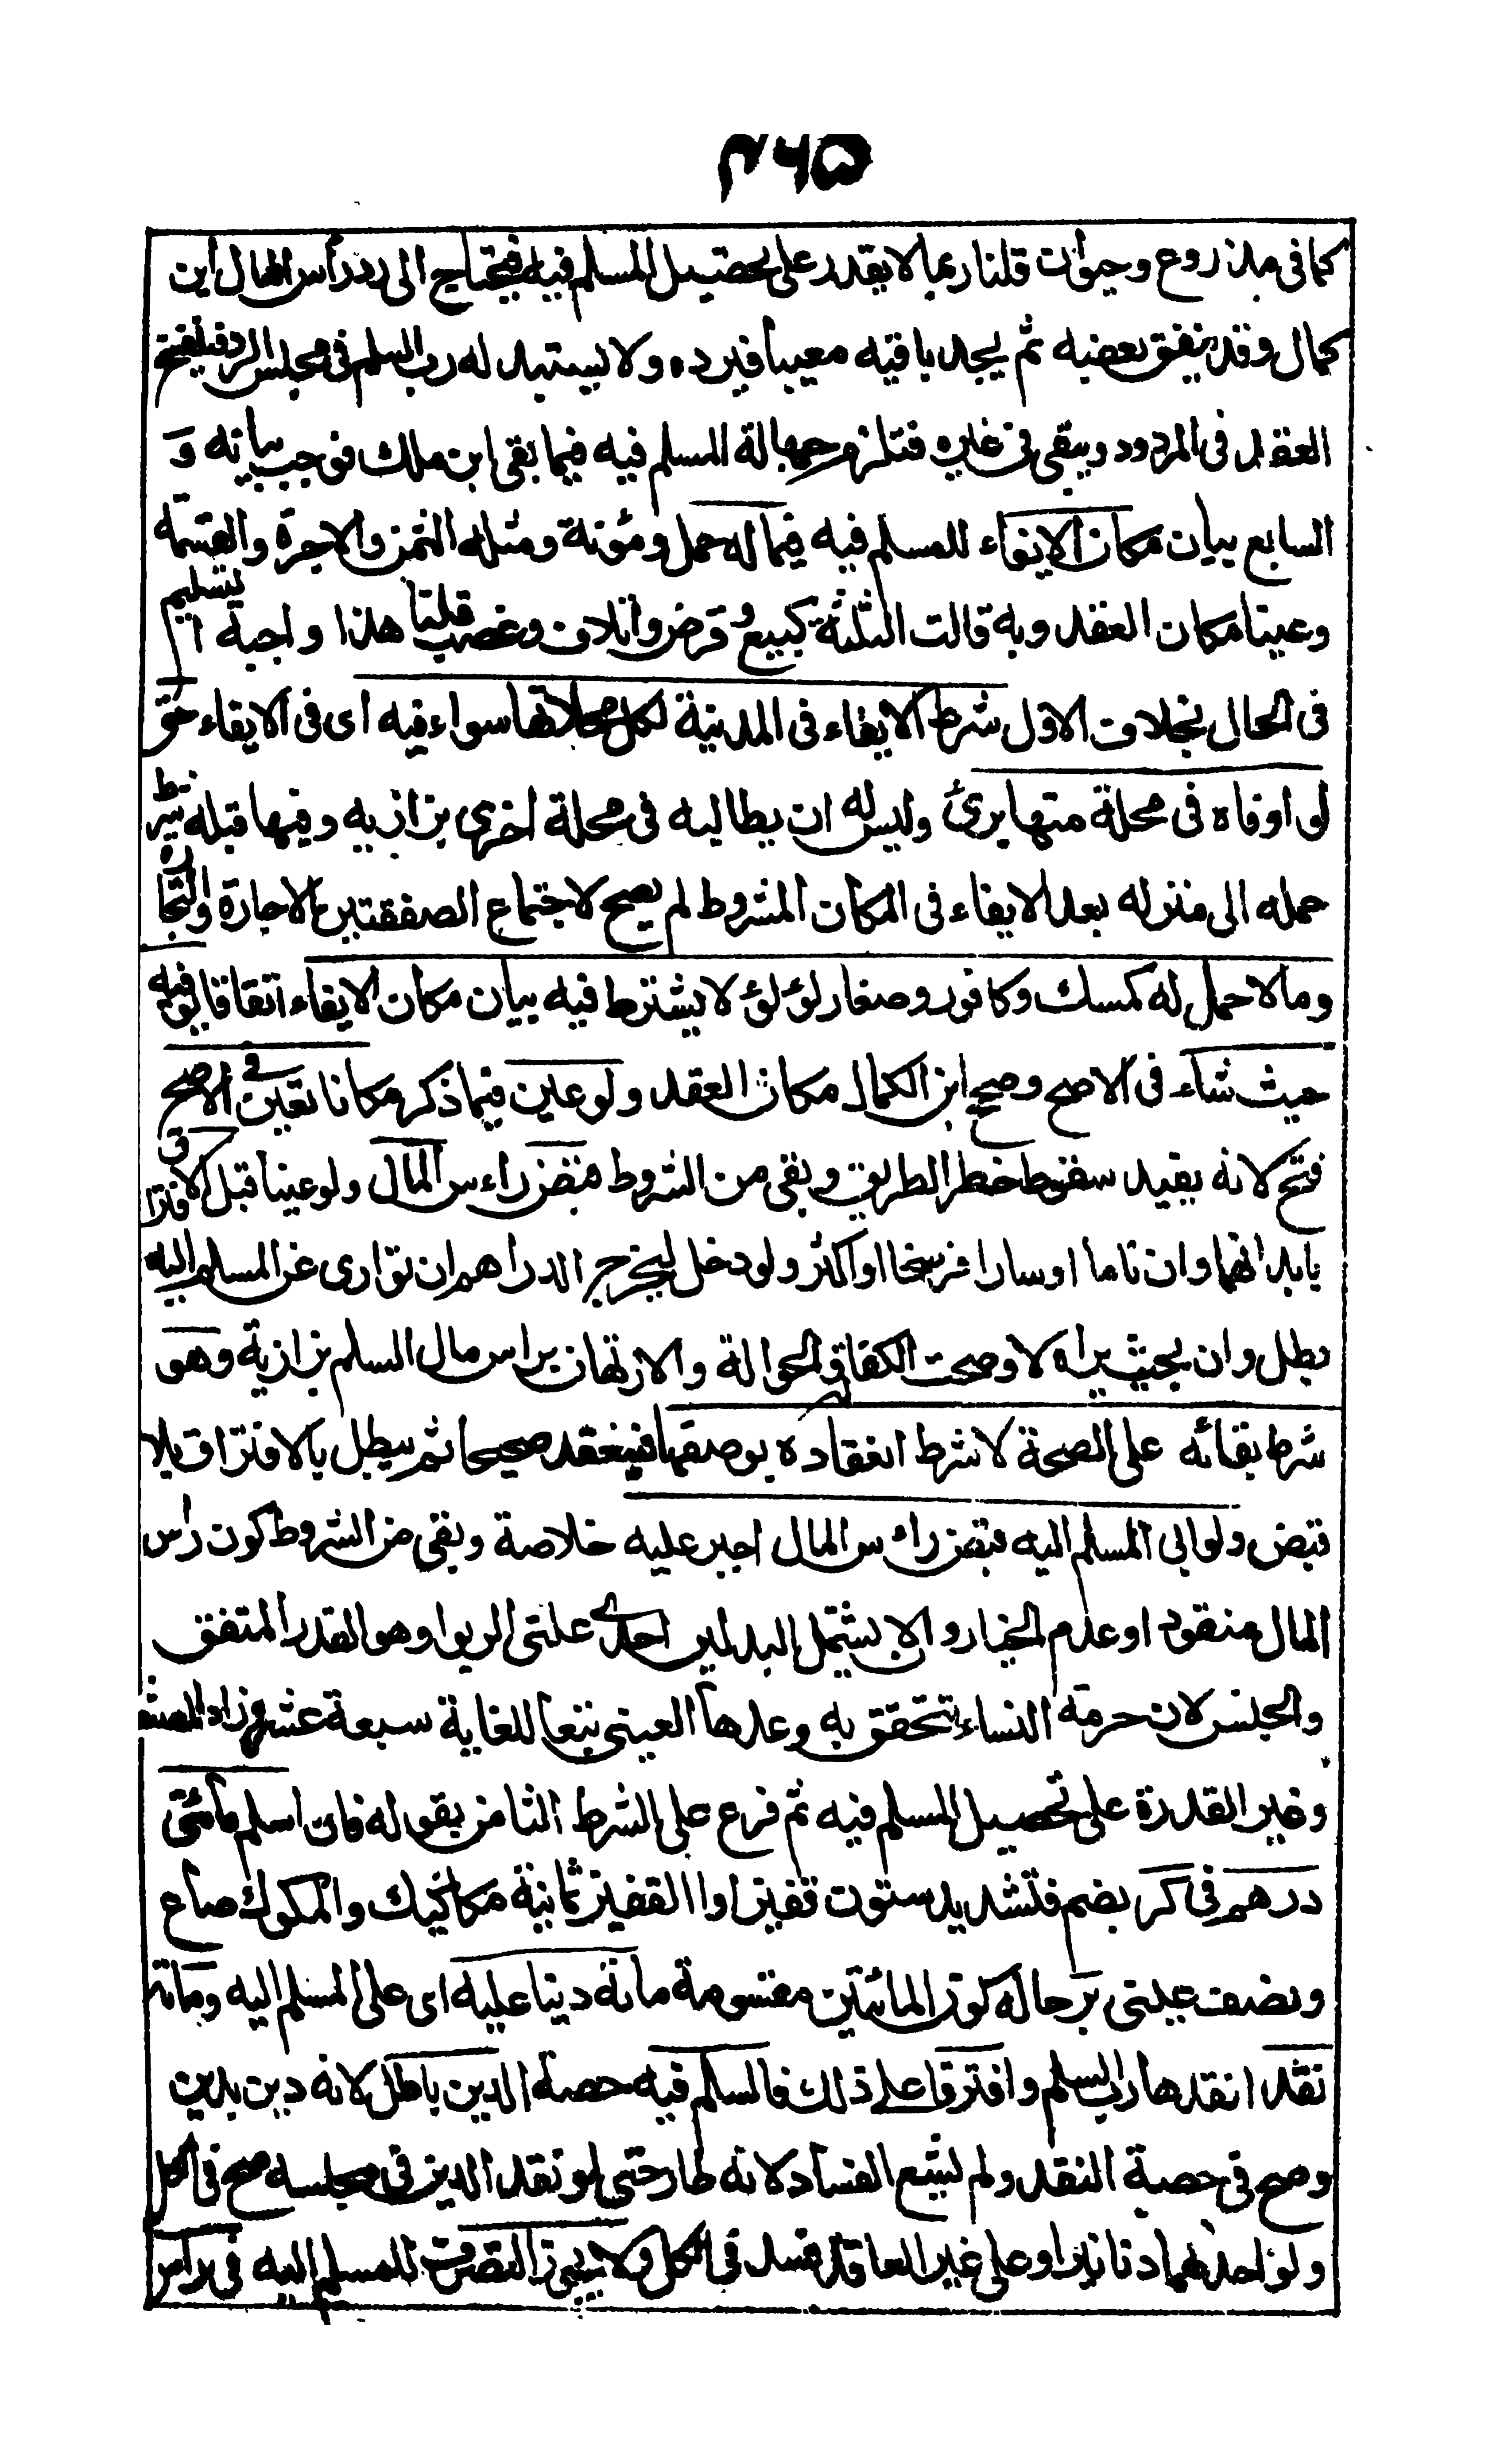 ٣٦٥
كما في مذروع وحيوان قلنا ربما لا يقدر على تحصيل المسلم فيه فيحتاج الى رد رأس المال ابن
كمال وقد ينفق بعضه ثم يجد باقيه معيبا فيرده ولا يستبدله رب السلم في مجلس الرد فينفسخ
العقد في المردود ويبقى في غيره فتلزم جهالة المسلم فيه فيما بقى ابن ملك فوجب بيانه و
السابع بيان مكان الايفاء للمسلم فيه فيما له حمل ومؤنة ومثله الثمن والاجرة والقسمة
وعينا مكان العقد وبه قالت الثلثة كبيع وقرض واتلاف وغصب قلنا هذا واجبة التسليم
في الحال بخلاف الاول شرط الايفاء في المدينة لكل محلاتها سواء فيه اى في الايفاء حتى
لو اوفاه في محلة منها برئ وليس له ان يطالبه في محلة اخرى بزازيه وفيها قبله شرط
حمله الى منزله بعد الايفاء في المكان المشروط لم يصح لاجتماع الصفقتين الاجارة والتجارة
وما لا حمل له كمسك وكافور وصغار لؤلؤ لا يشترط فيه بيان مكان الايفاء اتفاقا يوفيه
حيث شاء في الاصح وصحح ابن الكمال مكان العقد ولو عين فيما ذكر مكانا تعين في الاصح
فتح لانه يفيد سقوط خطر الطريق وبقى من الشروط قبض راءس المال ولو عينا قبل الافتراق
بابدانهما وان ناما او سارا فرسخا او اكثر ولو دخل ليخرج الدراهم ان توارى عن المسلم اليه
بطل وان بحيث يراه لا وصحت الكفالة والحوالة والارتهان براس مال السلم بزازية وهو
شرط بقائه على الصحة لا شرط انعقاده بوصفها فينعقد صحيحا ثم يبطل بالافتراق بلا
قبض ولو ابى المسلم اليه قبض راءس المال اجبر عليه خلاصة وبقى من الشروط كون رأس
المال منقودا وعدم الخيار وان لا يشتمل البدلين احدى علتى الربوا وهو القدر المتفق
والجنس لان حرمة النساء تتحقق به وعدها العينى تبعا للغاية سبعة عشر وزاد المصنف
وغير القدرة على تحصيل المسلم فيه ثم فرع على الشرط الثامن بقوله فان اسلم مأتى
درهم في كر بضم فتشديد ستون قفيزا والقفيز ثمانية مكاكيك والمكوك صاع
ونصف عينى بر حال كون المائتين مقسومة مائه دينا عليه اى على المسلم اليه ومائة
نقد انقدها رب السلم وافترقا على ذلك فالسلم فيه حصة الدين باطل لانه دين بدين
وصح في حصة النقد ولم يشع الفساد لانه طار حتى لو نقد الدين في مجلسه صح في الكل
ولو احدهما دنانير او على غير العاقد فسد في الكل ولا يجوز التصرف للمسلم اليه في رأس